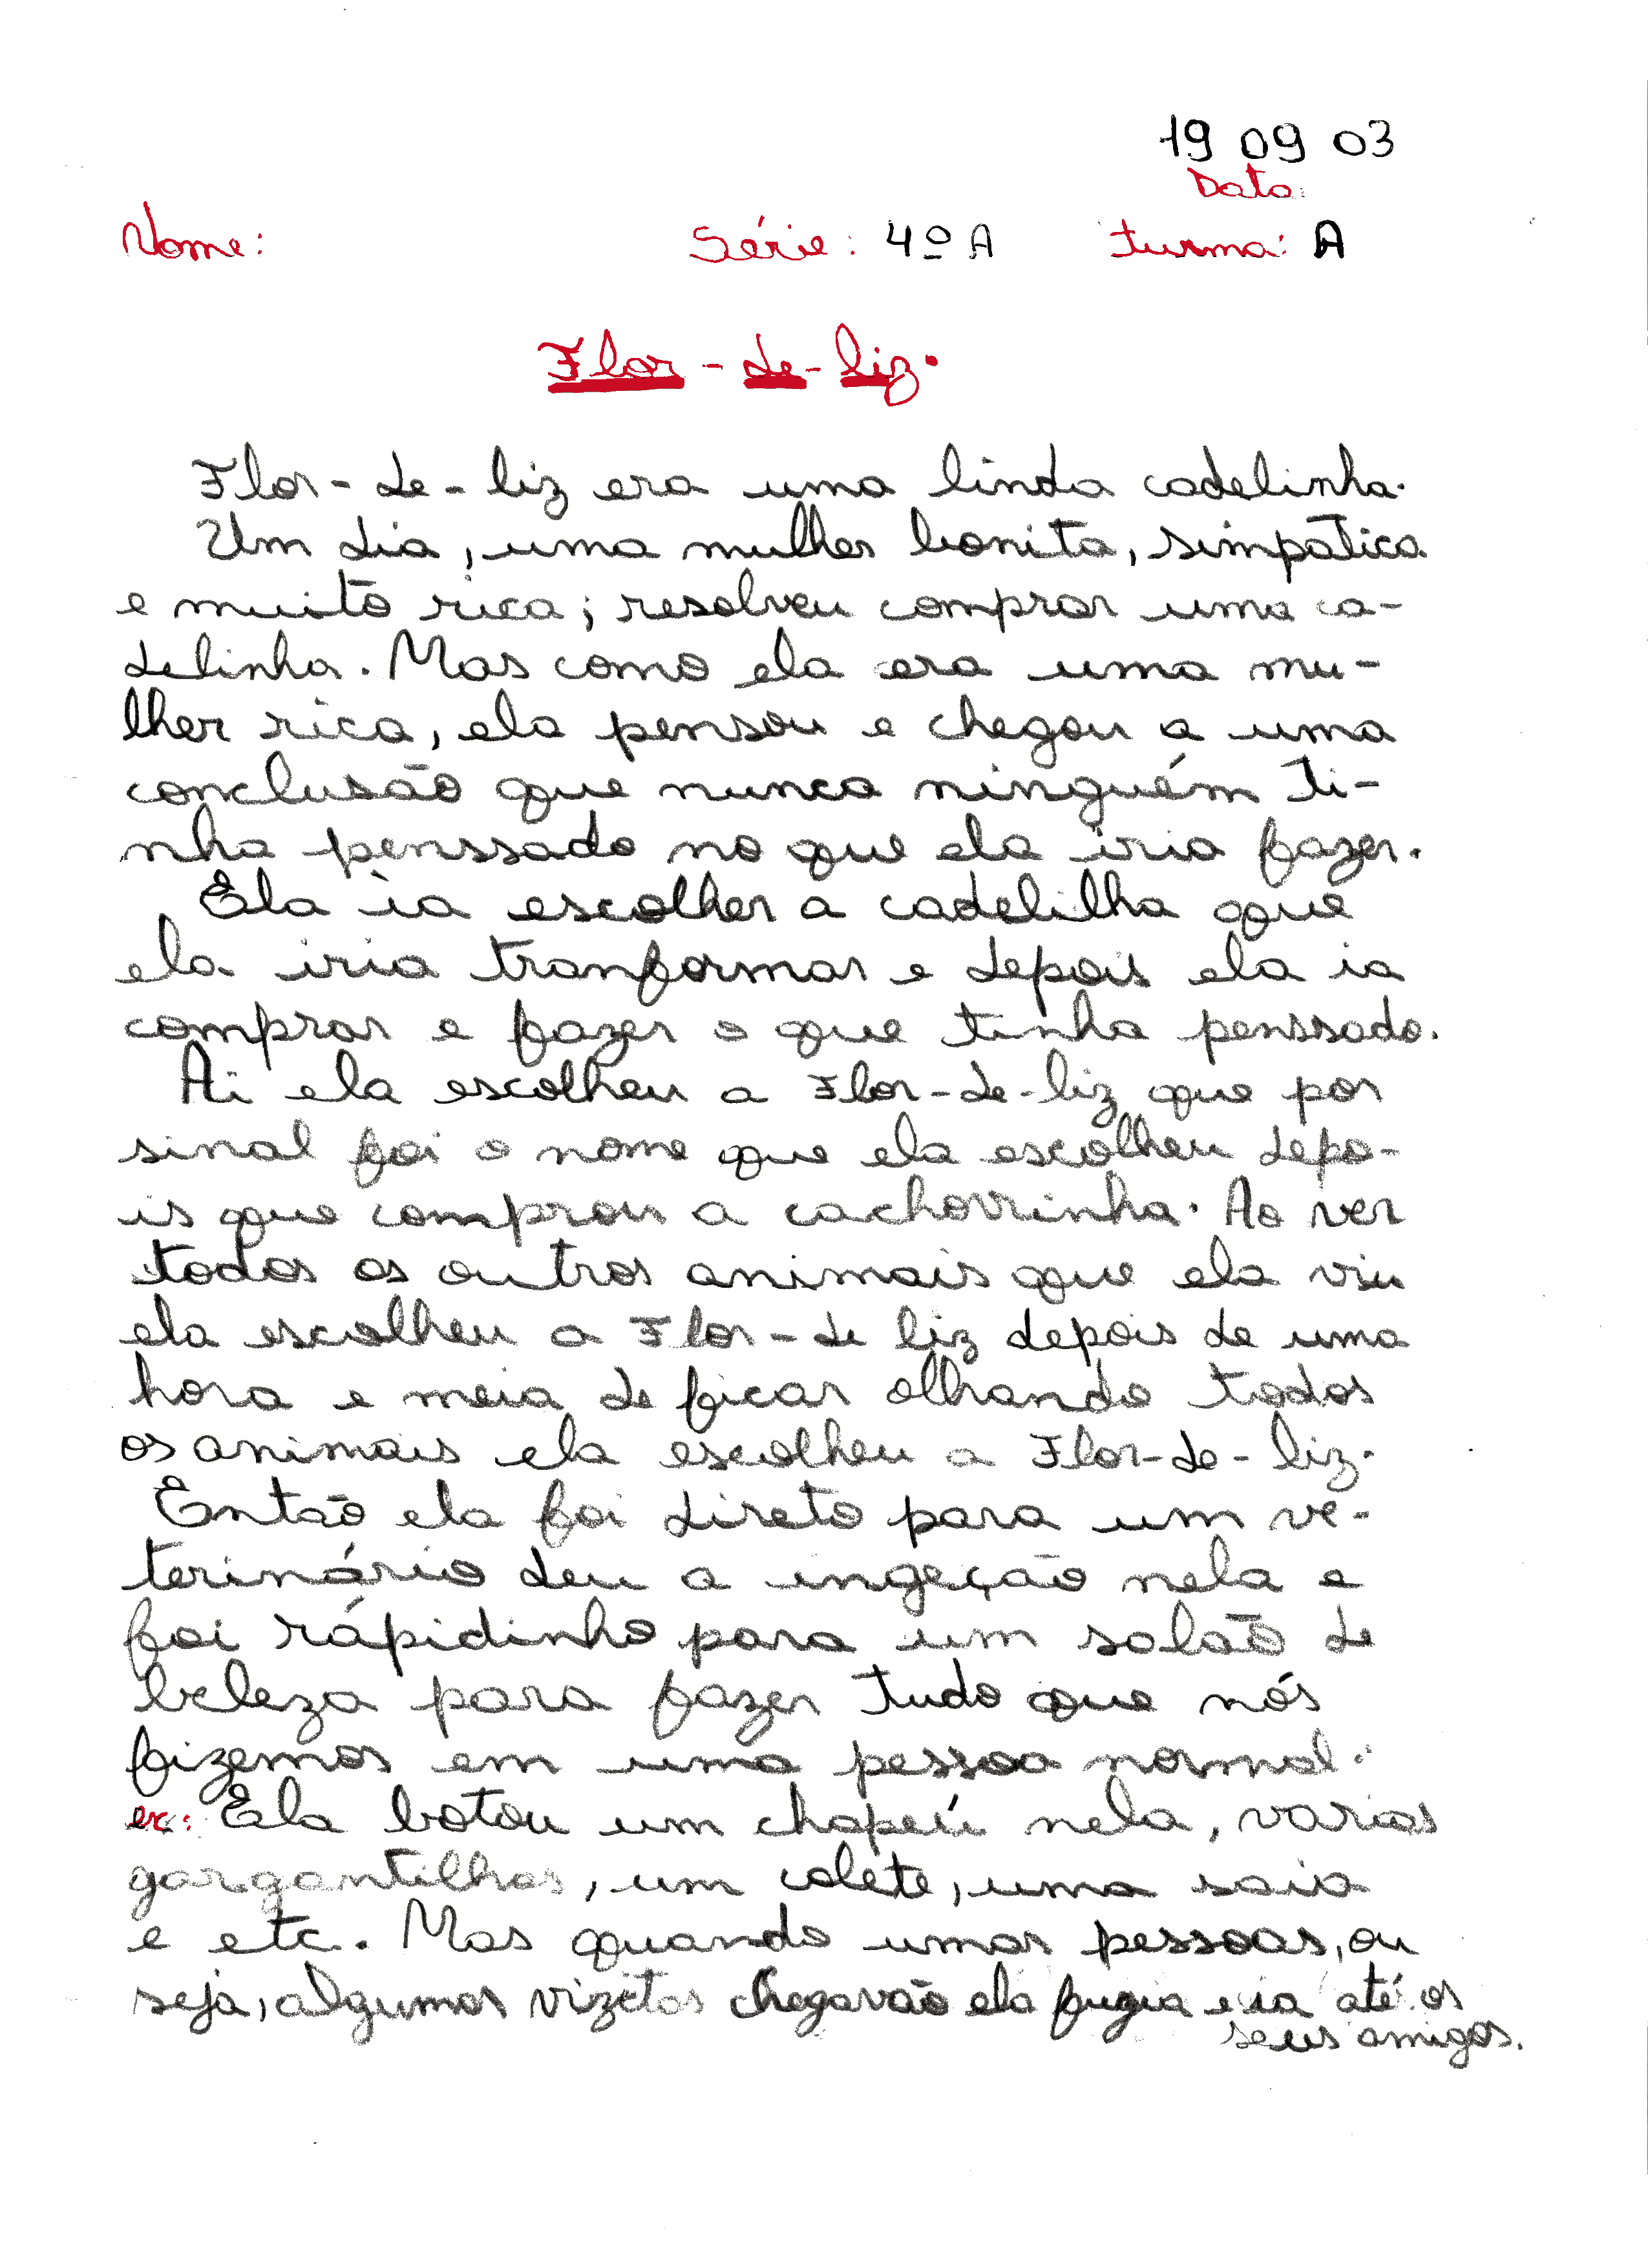 19 09 03
Data:
Nome: Série: 4º A turma: A
Flor-de-liz.
Flor-de-liz era uma linda cadelinha.
Um dia, uma mulher bonita, simpática
e muito rica; resolveu comprar uma ca-
delinha. Mas como ela era uma mu-
lher rica, ela pensou e chegou a uma
conclusão que nunca ninguém ti-
nha penssado no que ela iria fazer.
Ela ia escolher a cadelilha que
ela iria tranformar e depois ela ia
comprar e fazer o que tinha penssado.
Ai ela escolheu a Flor-de-liz que por
sinal foi o nome que ela escolheu depo-
is que comprou a cachorrinha. Ao ver
todos os outros animais que ela viu
ela escolheu a Flor-de liz depois de uma
hora e meia de ficar olhando todos
os animais ela escolheu a Flor-de-liz.
Então ela foi direto para um ve-
terinário deu a ingeção nela e
foi rápidinho para um salão de
beleza para fazer tudo que nós
fizemos em uma pessoa normal.
ex: Ela botou um chapeú nela, varias
gargantilhas, um colete, uma saia
e etc. Mas quando umas pessoas, ou
seja, algumas vizetas chegavão ela fugia e ia até os
seus amigos.